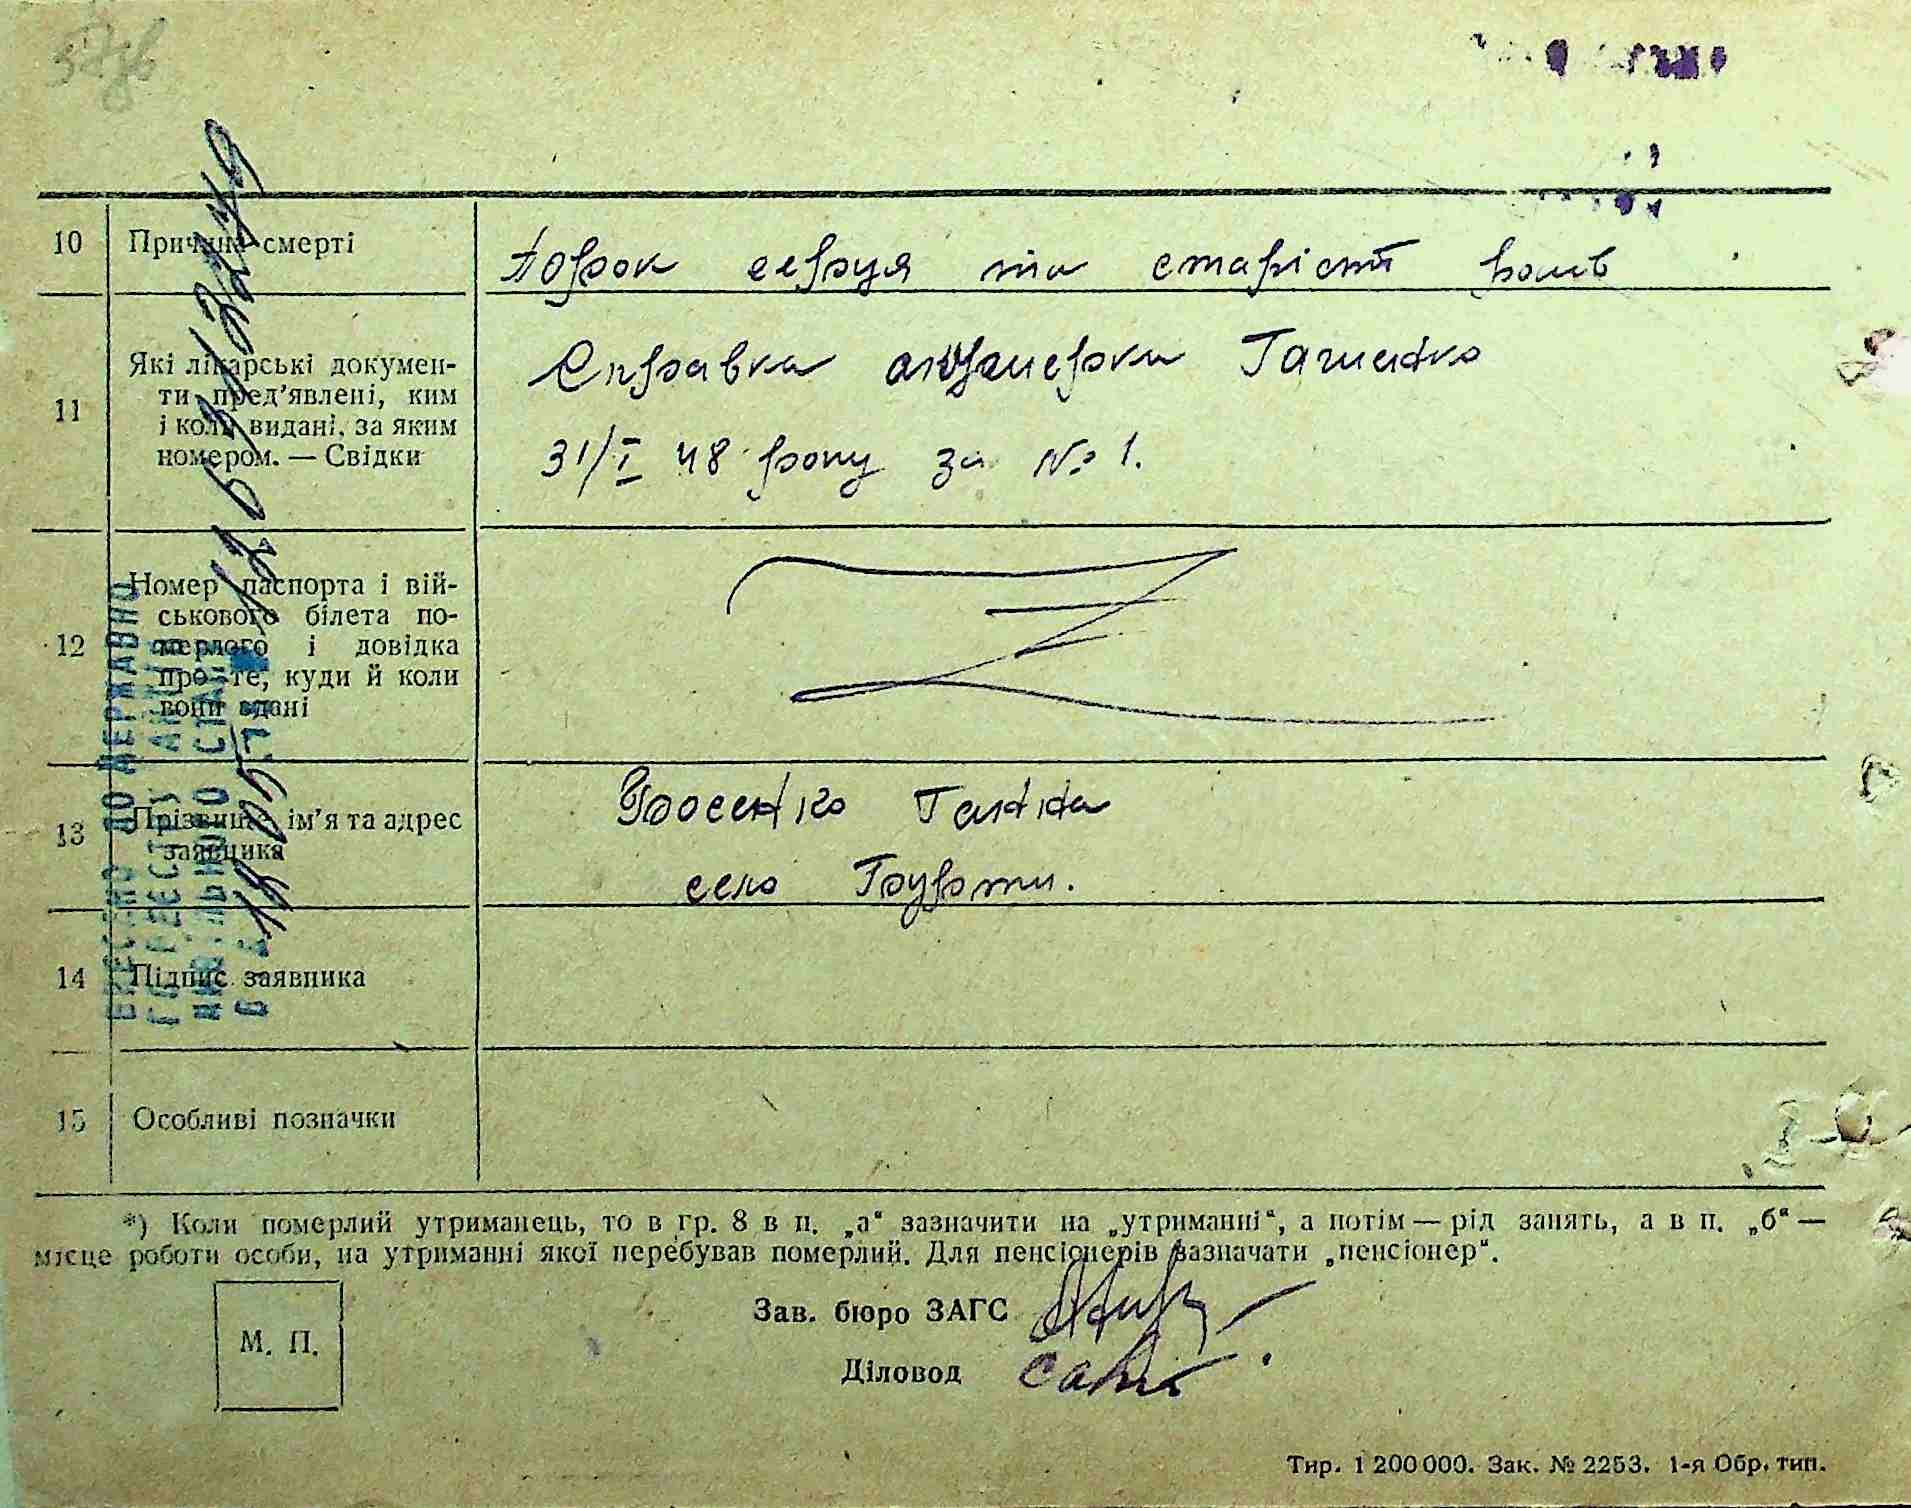 10 Причина смерті
Порок серця та старість
11 Які лікарські докумен-
ти пред’явлені, ким
і коли видані, за яким
номером. — Свідки
Справка акушерки
31/I 48 року за № 1.
12 Номер паспорта і вій-
ськового білета по-
мерлого і довідка
про те, куди й коли
вони здані
13 Прізвище, ім’я та адрес
заявника
Ганна
село
14 Підпис заявника
15 Особливі позначки
*) Коли померлий утриманець, то в гр. 8 в п. „а“ зазначити на „утриманні“, а потім — рід занять, а в п. „б“ —
місце роботи особи, на утриманні якої перебував померлий. Для пенсіонерів зазначати „пенсіонер“.
М. П.
Зав. бюро ЗАГС
Діловод
Тир. 1 200 000. Зак. № 2253. 1-я Обр. тип.
ВНЕСЕНО ДО ДЕРЖАВНО
ГО РЕЄСТРУ АКТІВ